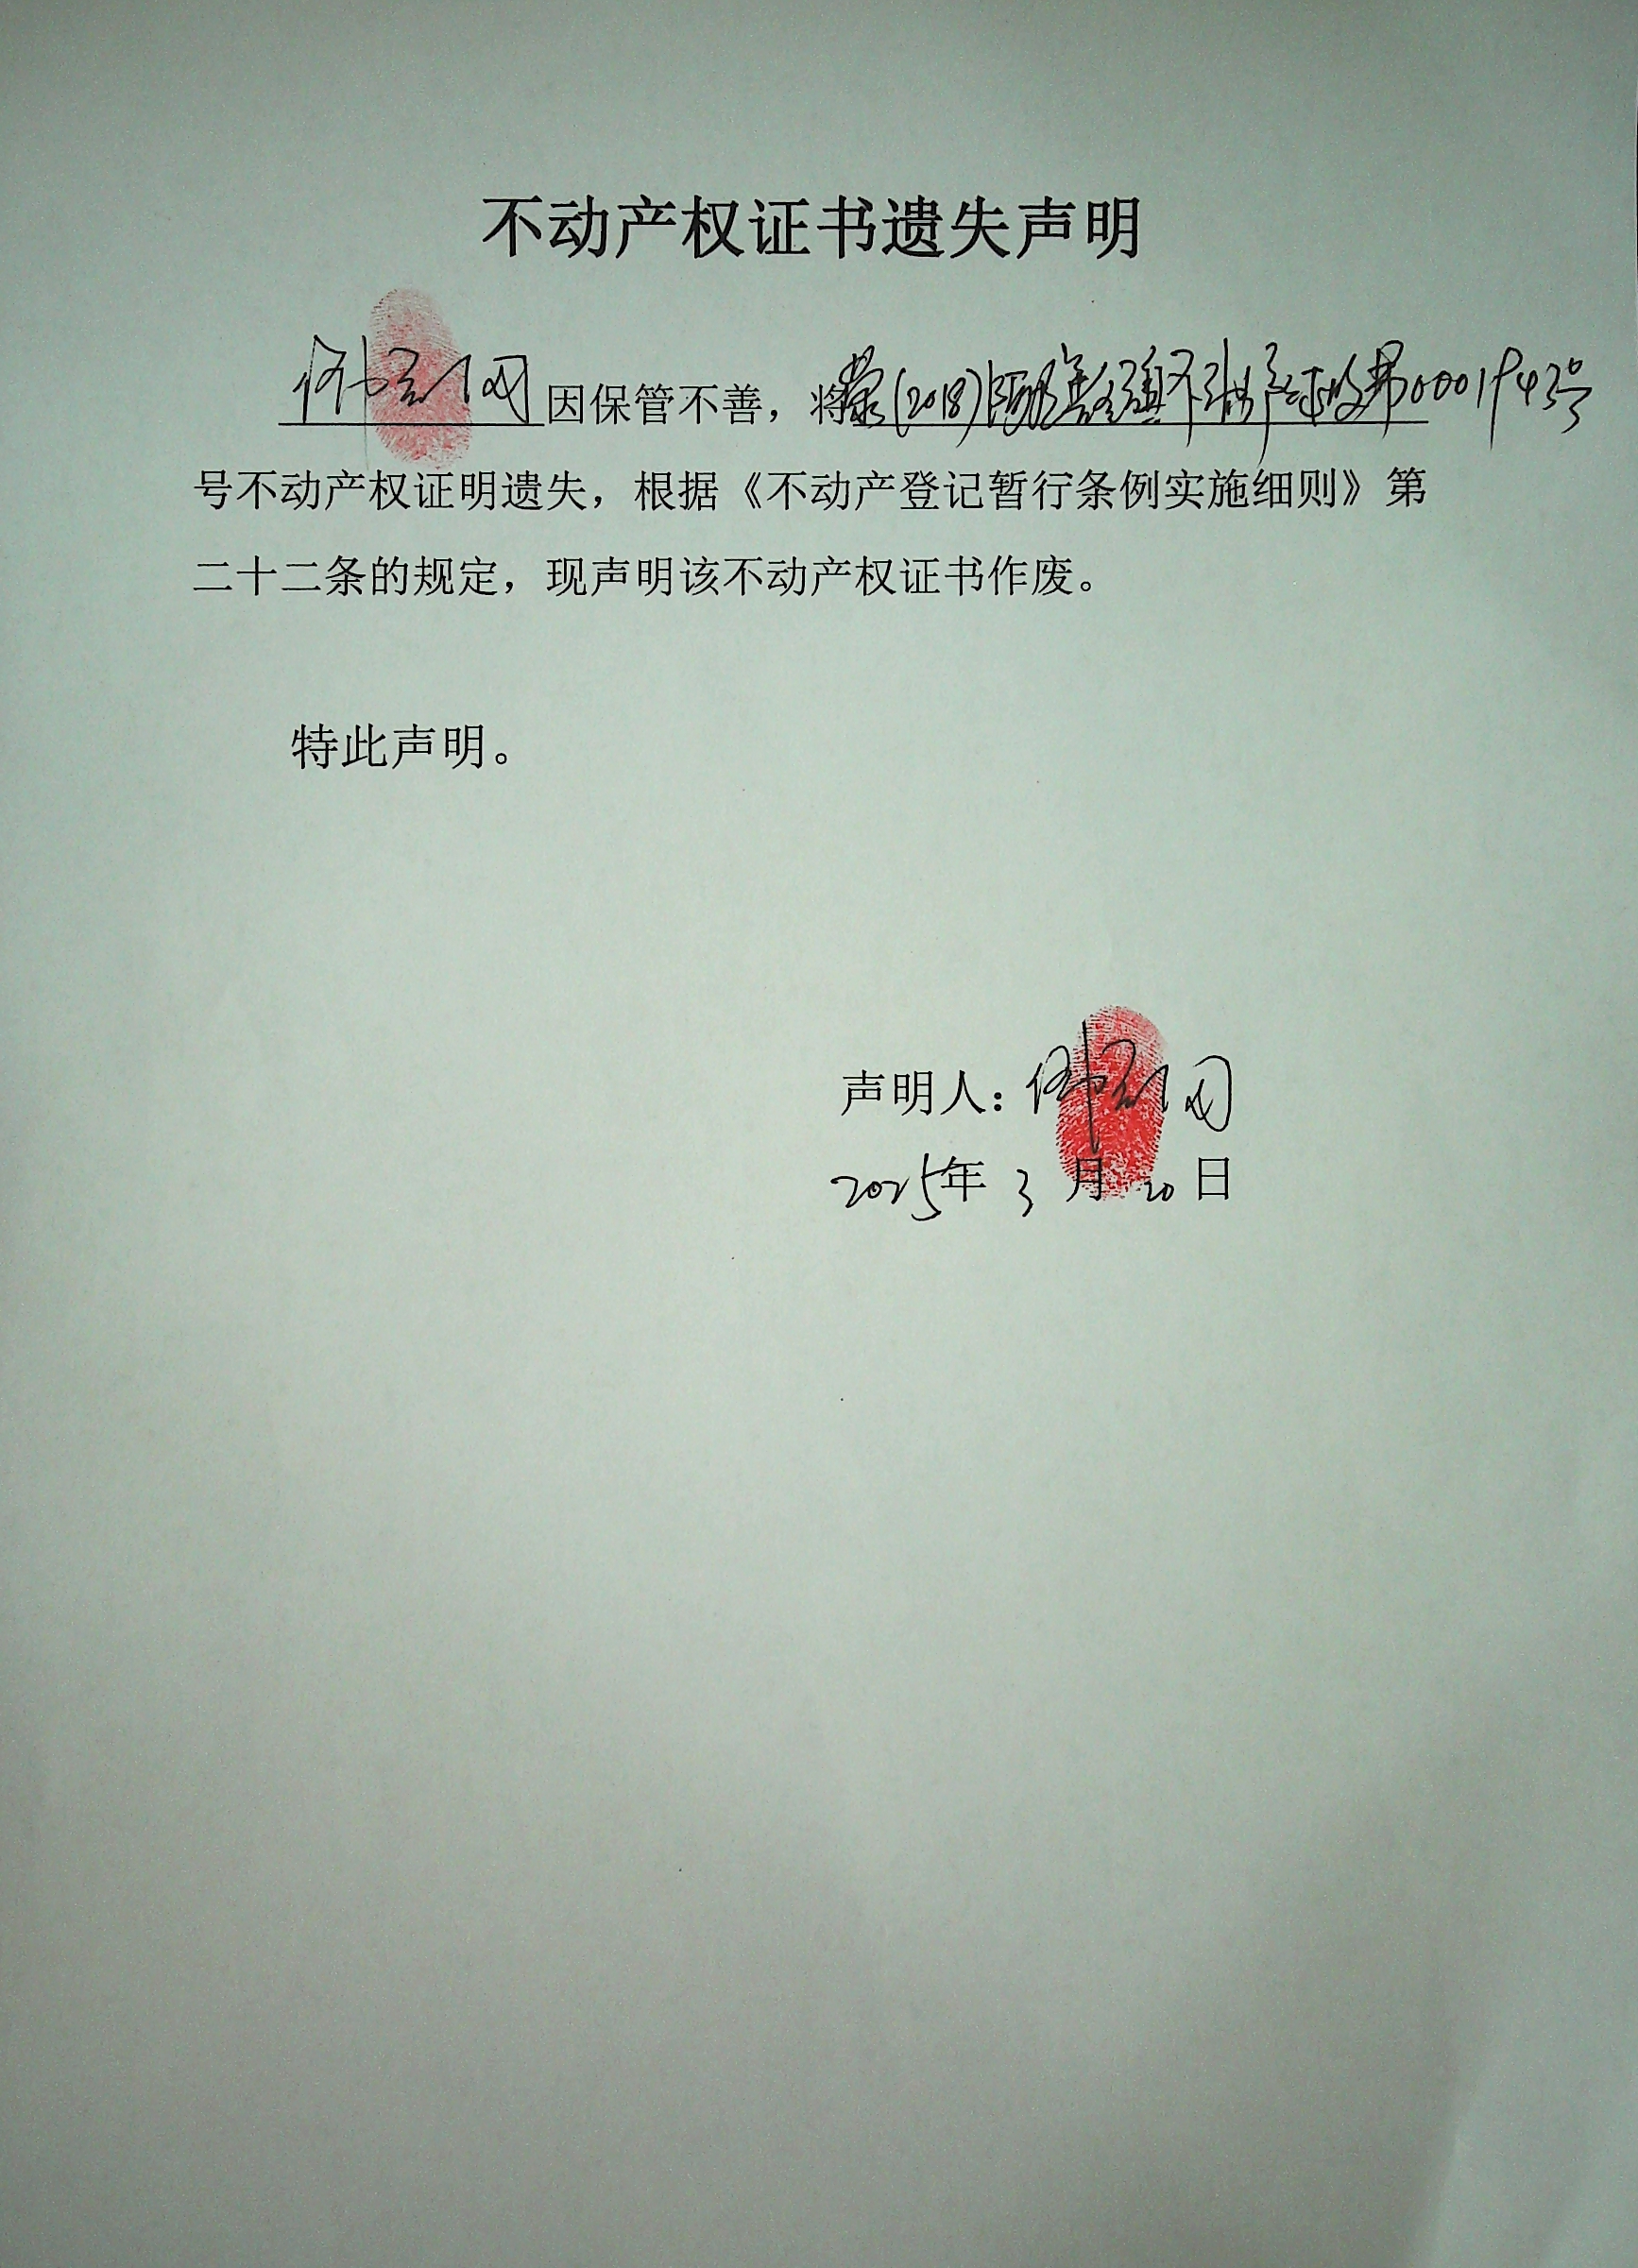 不动产权证书遗失声明
因保管不善，将蒙(2018)阿鲁科尔沁旗不动产权第0001943号
号不动产权证明遗失，根据《不动产登记暂行条例实施细则》第
二十二条的规定，现声明该不动产权证书作废。
特此声明。
声明人：
2025年 3 月 20 日